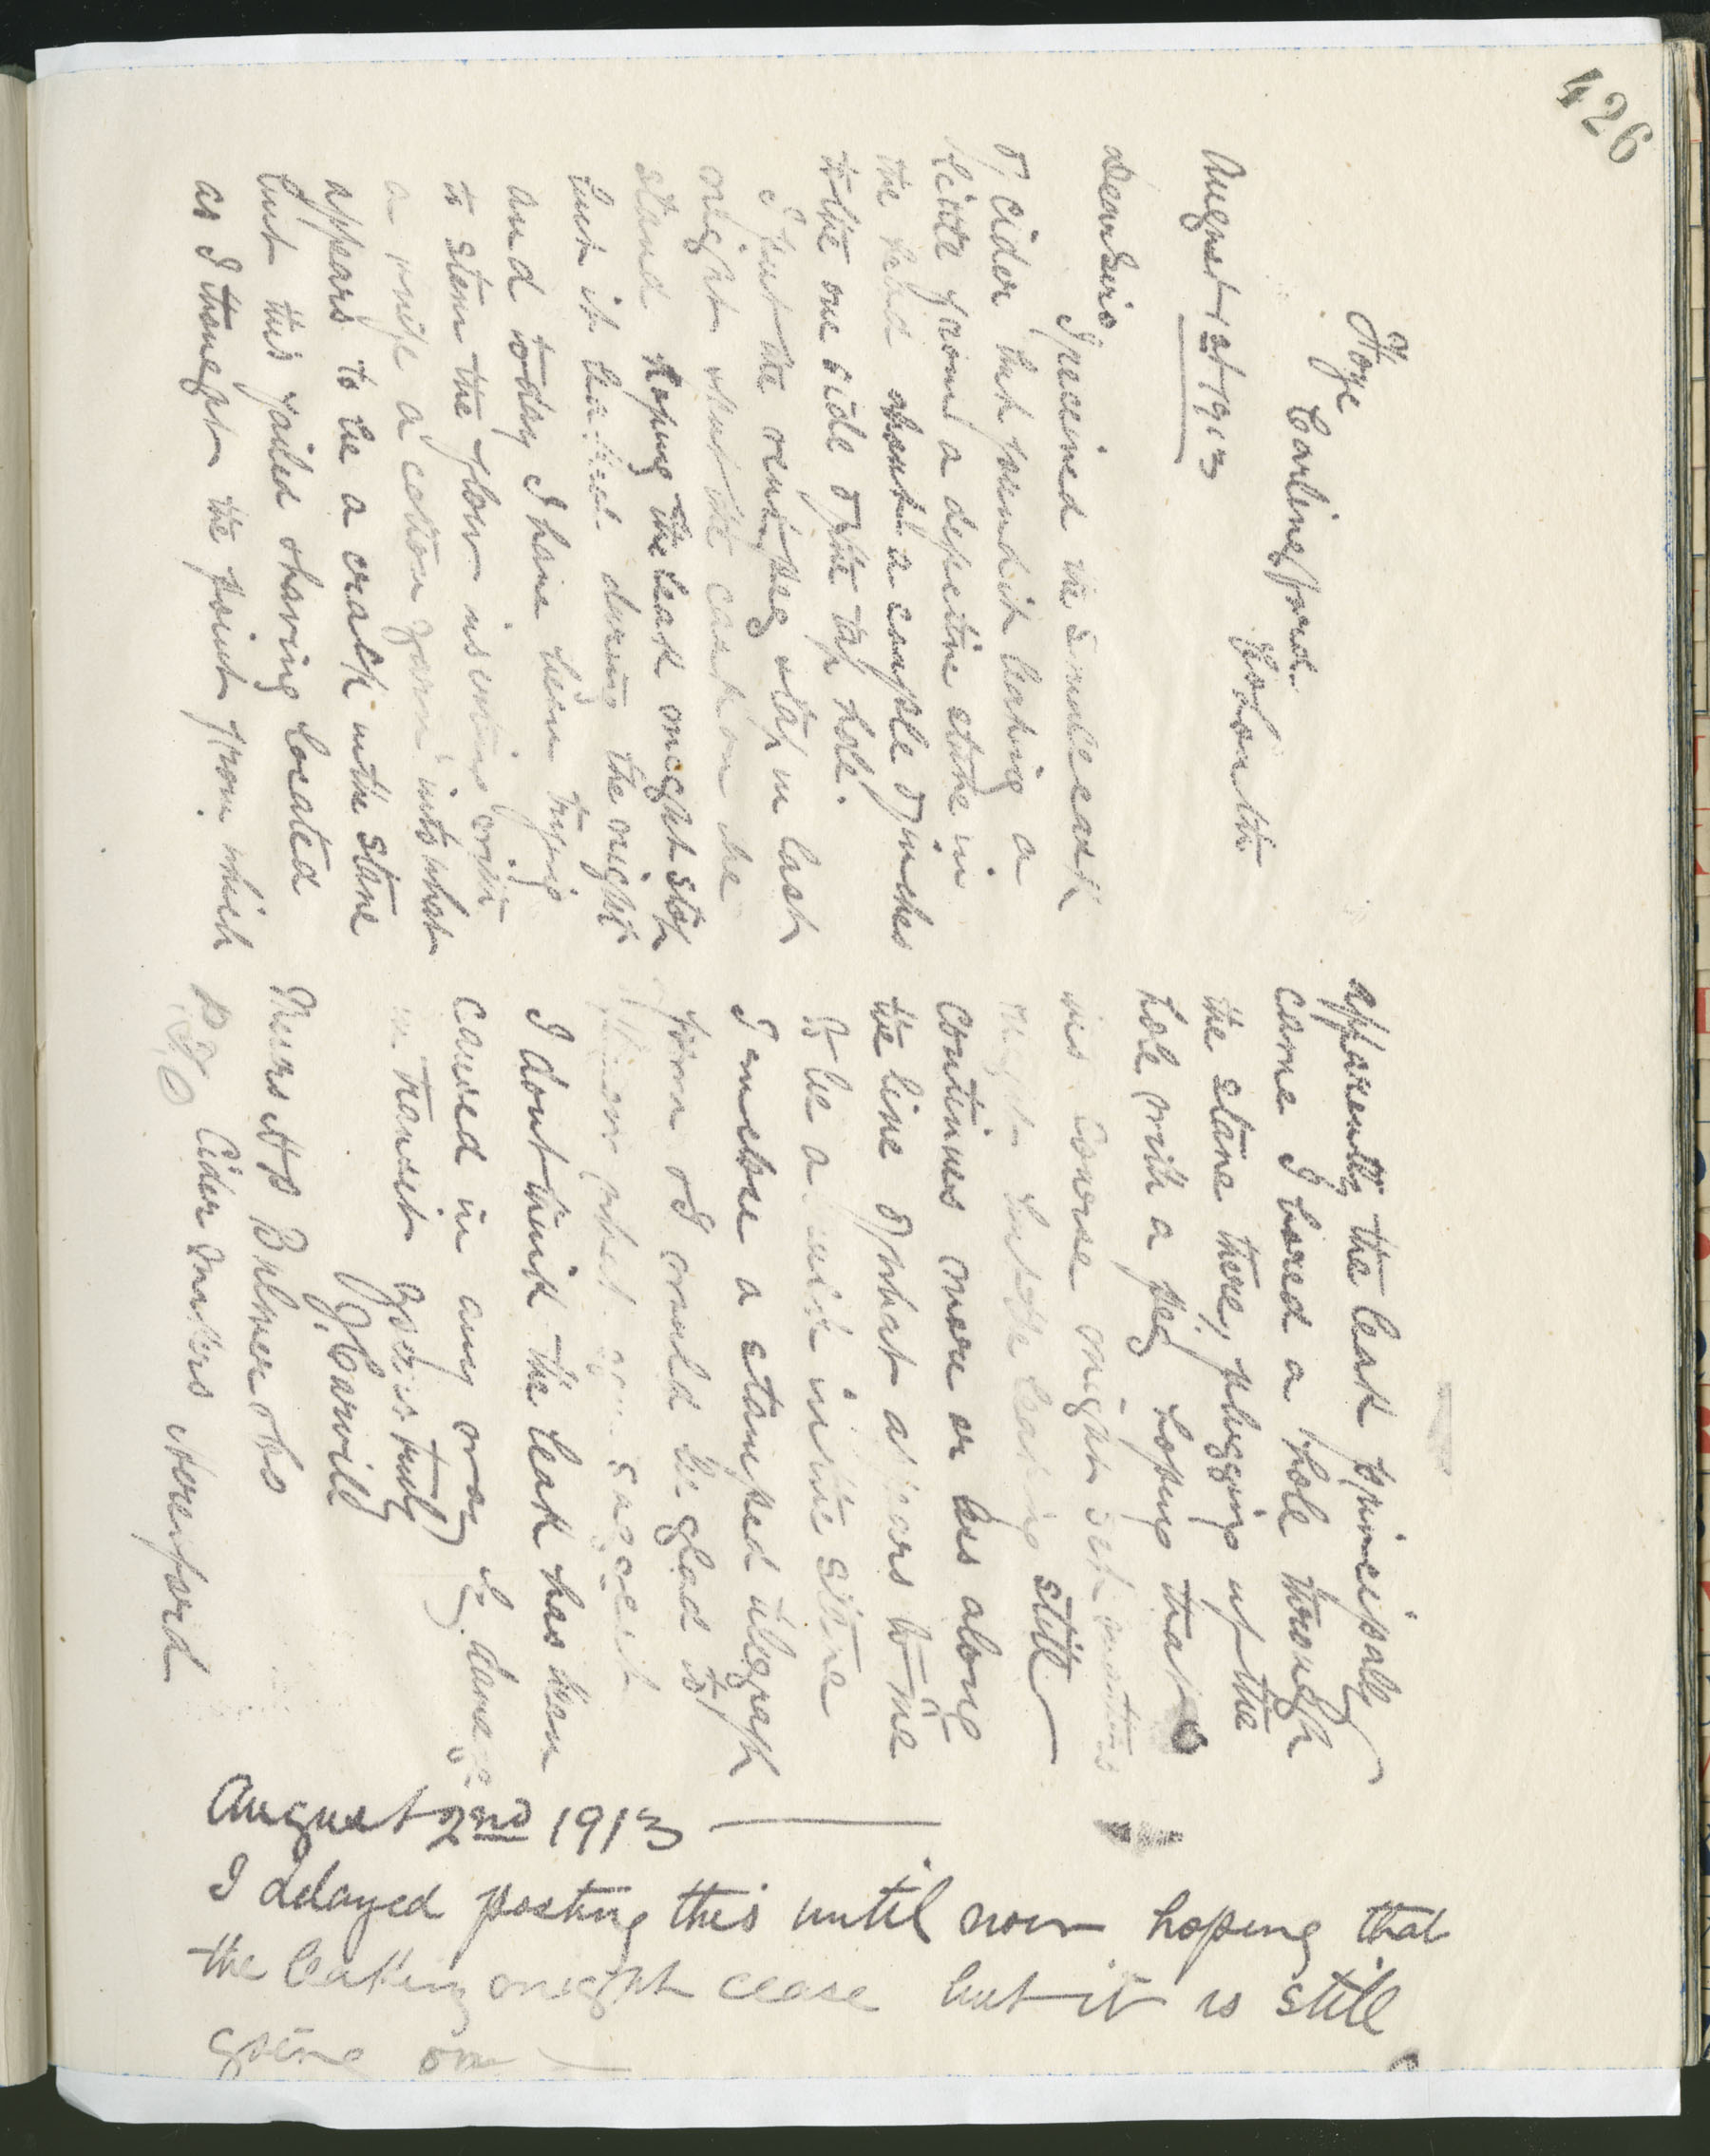 426
Hoye
Carlingford
Co Louth
August 1st 1913
Dear Sirs
I received the small cask
of cider but found it leaking a
little from a defective stave in
the head about a couple of inches
to the one side of the tap hole.
I put the vent peg & tap in last
night & put the cask on the
stand hoping the leak might stop
but it hadn't during the night
and today I have been trying
to stem the flow inserting with
a knife a cotton yarn into what
appears to be a crack in the stave
but this failed & having located
as I thought the point from which
apparently the leak principally
came I bored a hole through
the stave there, plugging up the
hole with a peg hoping that
this course might set matters
right but the leaking still
continues more or less along
the line of what appears to me
to be a in the stave
I enclose a stamped telegraph
form & I would be glad to
what you suggest
I dont think the leak has been
caused in any way by damage
in transit Yours truly
J. Carvill
Messrs H P Bulmer & Co
Cider Makers Hereford
August 2nd 1913
I delayed posting this until now hoping that
the leaking might cease but it is still
going on